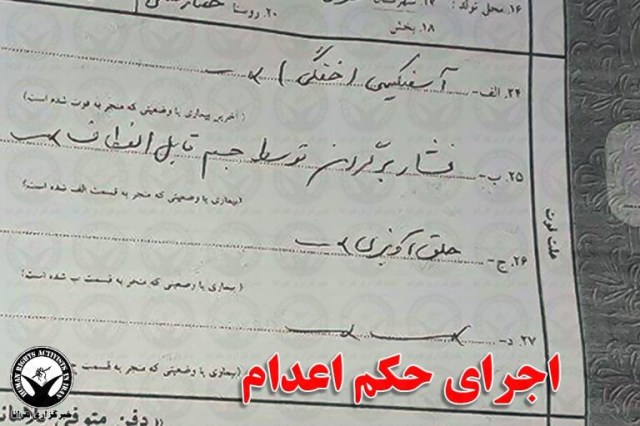 ۱۶. محل تولد :
۱۸. بخش
۲۰. روستا
۲۴. الف- آسفیکسی (خفگی)
(آخرین بیماری یا وضعیتی که منجر به فوت شده است)
۲۵. ب- فشار بر گردن توسط جسم قابل انعطاف
(بیماری یا وضعیتی که منجر به قسمت الف شده است)
۲۶. ج- حلق آویزی
(بیماری یا وضعیتی که منجر به قسمت ب شده است)
۲۷. د-
(بیماری یا وضعیتی که منجر به قسمت ج
علت فوت
اجرای حکم اعدام
HUMAN RIGHTS ACTIVISTS IN IRAN
خبرگزاری هرانا
«دفن متوفی بلامانع